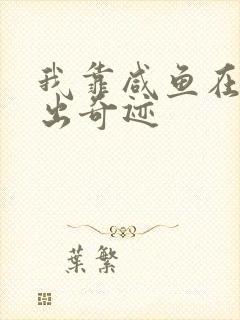 我靠咸鱼在
出奇迹
葉繁